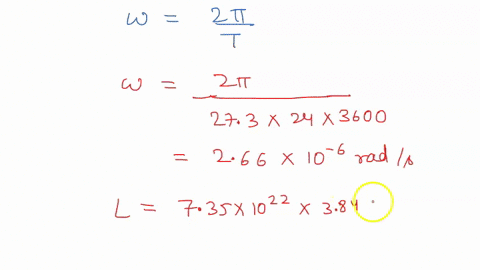 ω = 2π / T
ω = 2π / 27.3 × 24 × 3600
= 2.66 × 10⁻⁶ rad/s
L = 7.35 × 10²² × 3.84